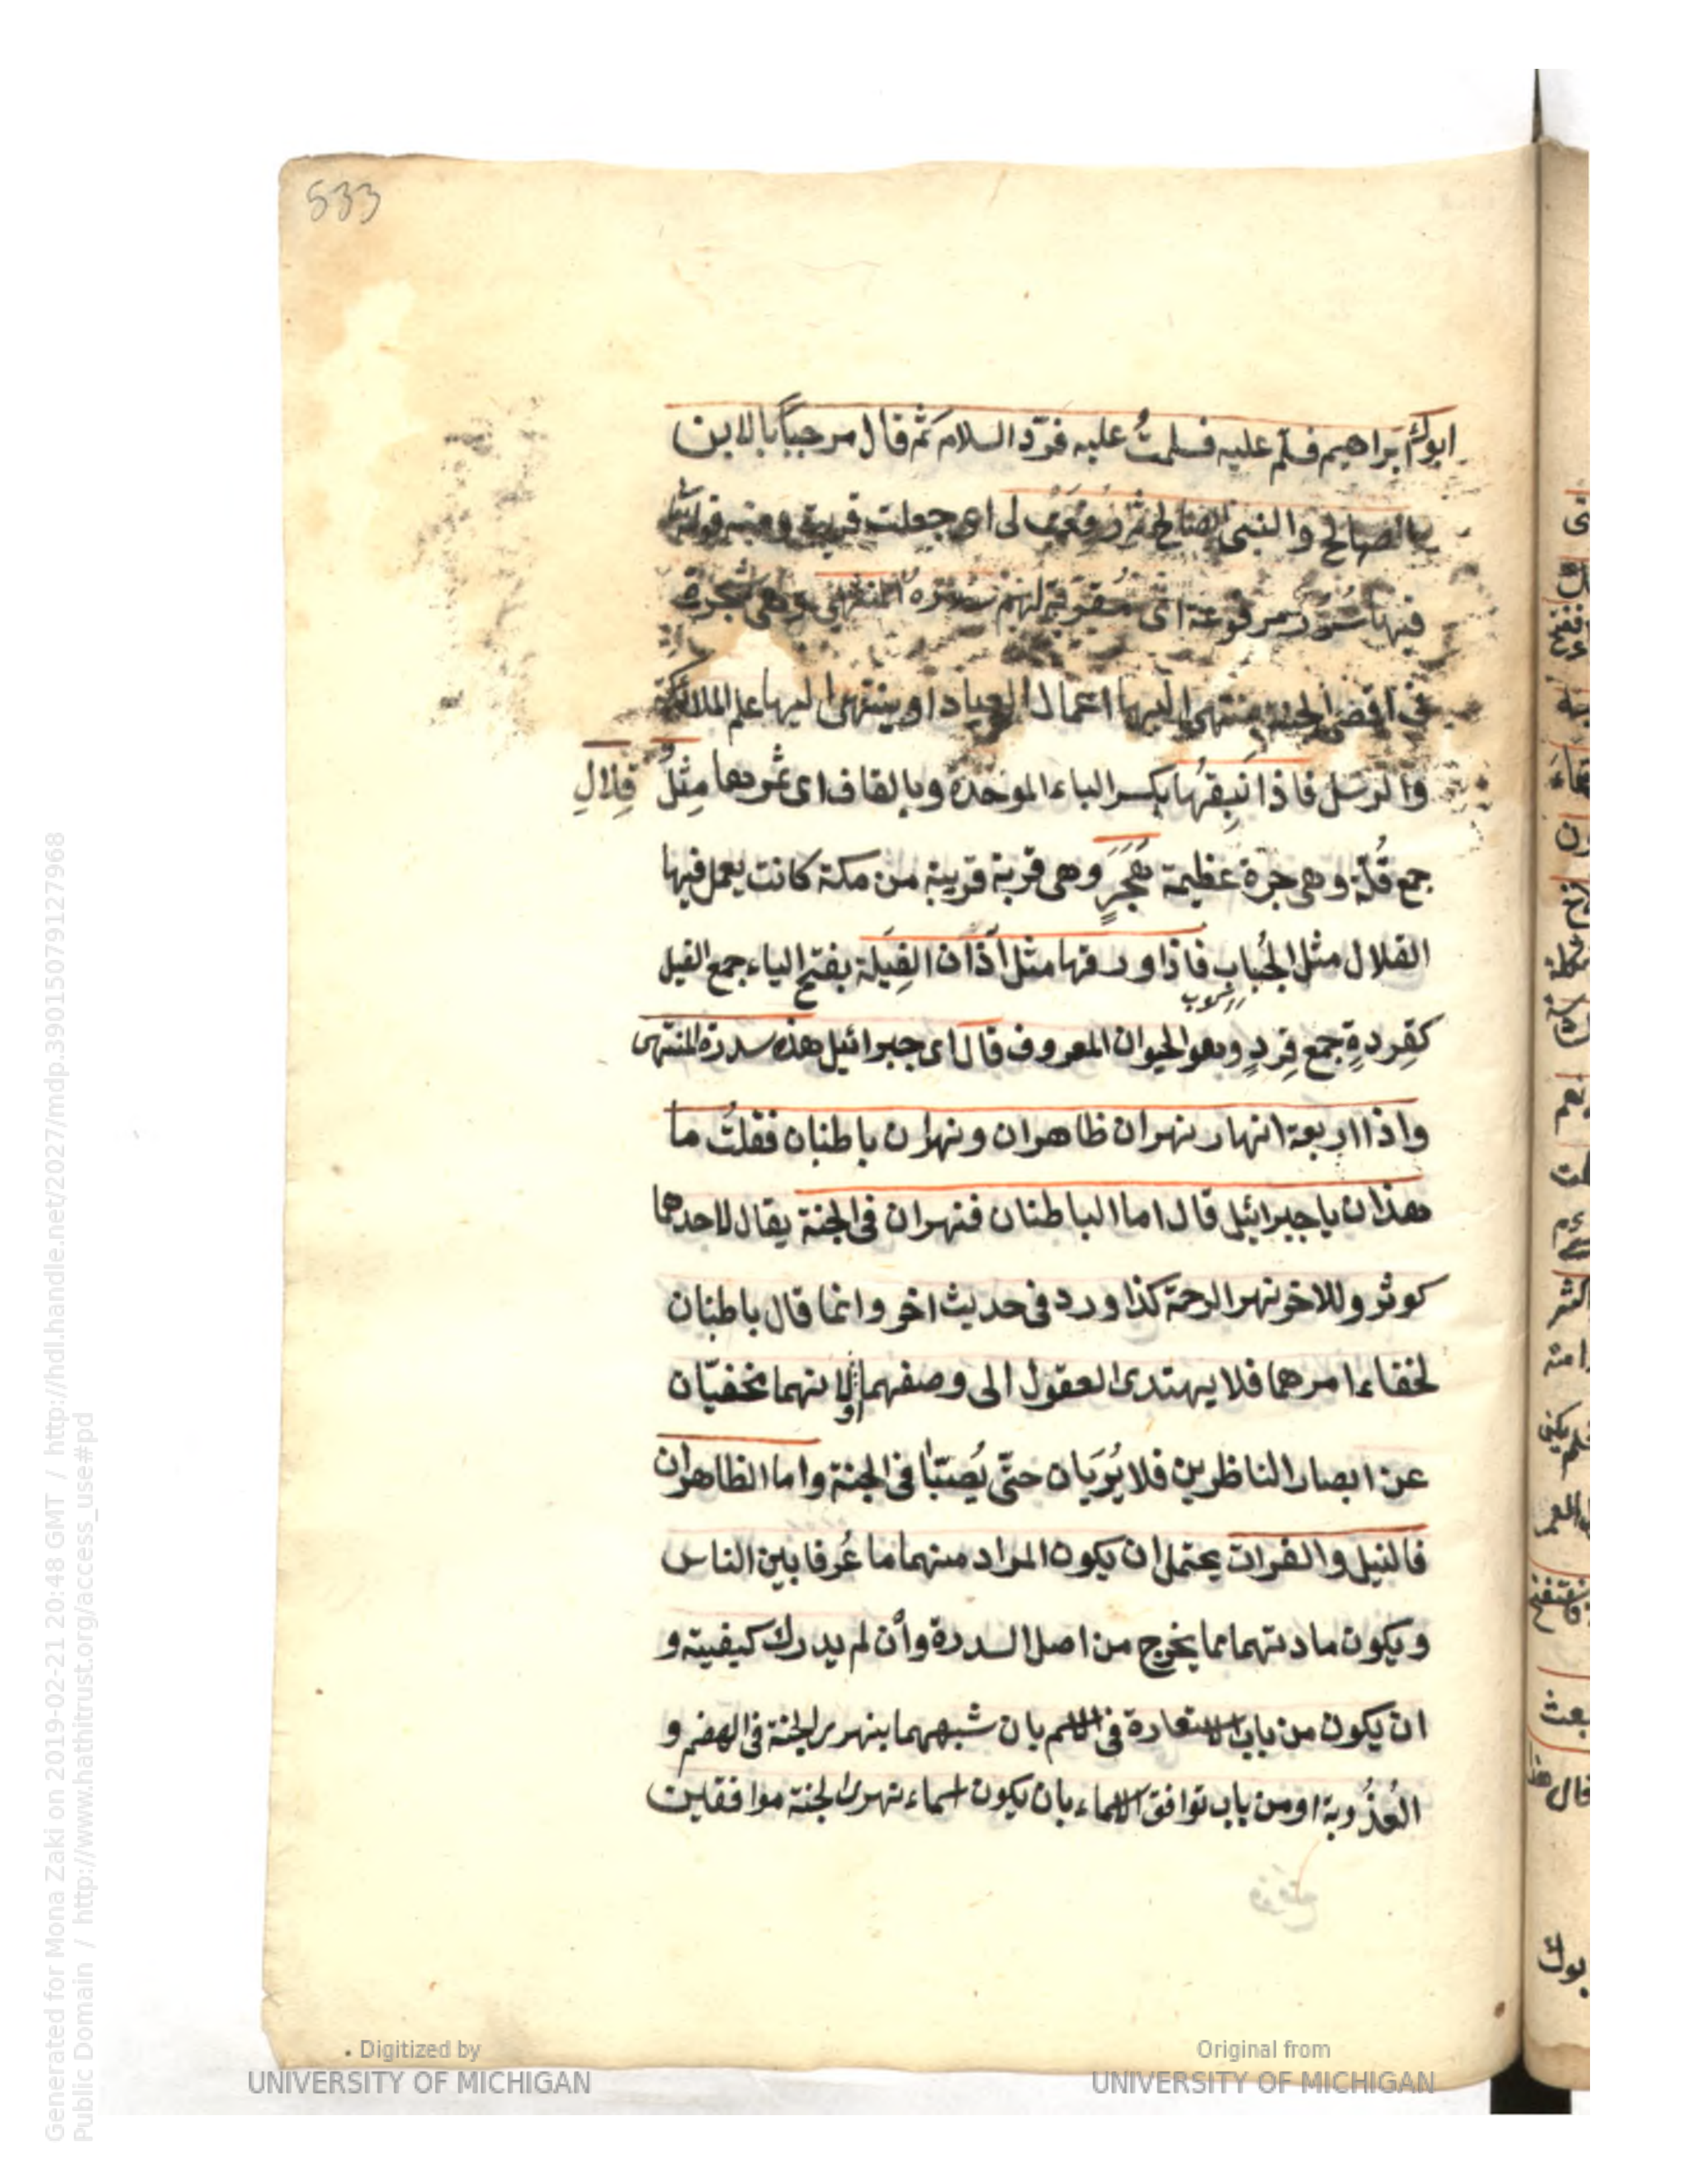 533
ابوك ابراهيم فسلم عليه فسلمتُ عليه فردّ السلام ثم قال مرحباً بالابن
الصالح والنبى الصالح ثم رفعت لى اى جعلت قريبة ومنه قوله تعالى
فيها سرر مرفوعة اى مقربة لهم سدرة المنتهى وهى شجرة
فى اقصى الجنة ينتهى اليها اعمال العباد او ينتهى اليها علم الملائكة
والرسل فاذا نبقها بكسر الباء الموحدة وبالقاف اى ثمرها مثل قلال
جمع قُلّة وهى جرة عظيمة هَجَرٍ وهى قرية قريبة من مكة كانت يعمل فيها
القلال مثل الجُباب فاذا ورقها مثل آذان الفِيَلة بفتح الياء جمع الفيل
كقِردةٍ جمع قِردٍ وهو الحيوان المعروف قال اى جبرائيل هذه سدرة المنتهى
واذا اربعة انهار نهران ظاهران ونهران باطنان فقلتُ ما
هذان يا جبرائيل قال اما الباطنان فنهران فى الجنة يقال لاحدهما
كوثر وللاخر نهر الرحمة كذا ورد فى حديث اخر وانما قال باطنان
لخفاء امرهما فلا يهتدى العقول الى وصفهما او لانهما مخفيّان
عن ابصار الناظرين فلا يُرَيان حتّى يُصبّا فى الجنة واما الظاهران
فالنيل والفرات يحتمل ان يكون المراد منهما ما عُرفا بين الناس
ويكون مادتهما مما يخرج من اصل السدرة وان لم يدرك كيفيته و
ان يكون من باب الاستعارة فى الاسم بان شبههما بنهرى الجنة فى الهضم و
العُذُوبة او من باب توافق الاسماء بان يكون اسماء نهرى الجنة موافقين
Generated for Mona Zaki on 2019-02-21 20:48 GMT / http://hdl.handle.net/2027/mdp.39015079127968
Public Domain / http://www.hathitrust.org/access_use#pd
Digitized by
UNIVERSITY OF MICHIGAN
Original from
UNIVERSITY OF MICHIGAN